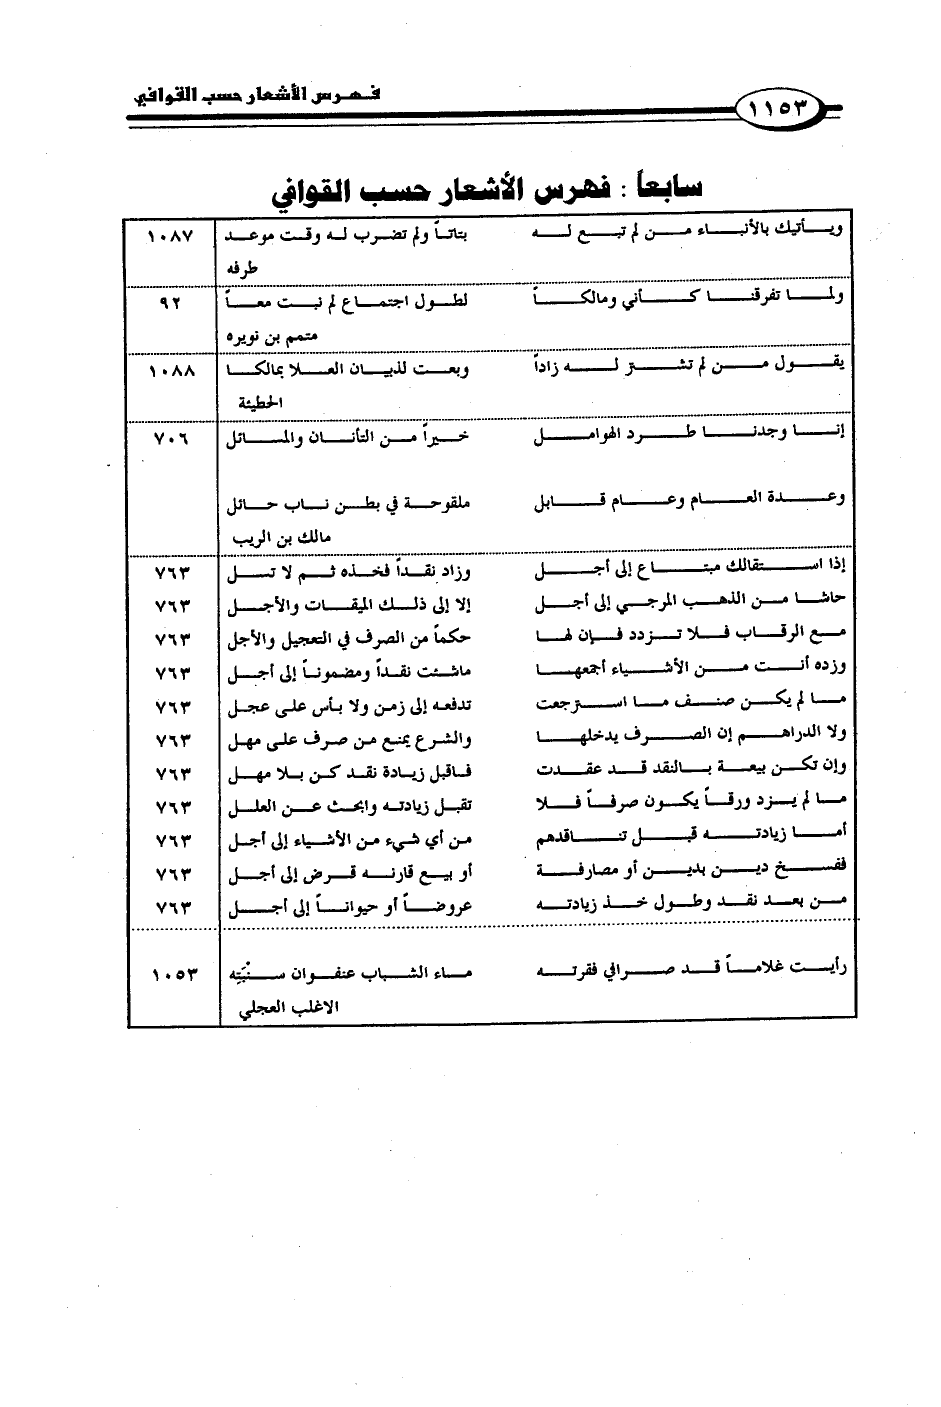 فهرس الأشعار حسب القوافي
١١٥٣
سابعاً : فهرس الأشعار حسب القوافي
ويأتيك بالأنباء من لم تبع له بتاتاً ولم تضرب له وقت موعد ١٠٨٧
طرفه
ولما تفرقنا كأني ومالكاً لطول اجتماع لم نبت معاً ٩٢
متمم بن نويره
يقول من لم تشتر له زاداً وبعت لذبيان العلا بمالكا ١٠٨٨
الحطيئة
إنا وجدنا طرد الهوامل خيراً من التأنان والمسائل ٧٠٦
وعدة العام وعام قابل ملقوحة في بطن ناب حائل
مالك بن الريب
إذا استقالك مبتاع إلى أجل وزاد نقداً فخذه ثم لا تسل ٧٦٣
حاشا من الذهب المرجي إلى أجل إلا إلى ذلك الميقات والأجل ٧٦٣
مع الرقاب فلا تزدد فإن لها حكماً من الصرف في التعجيل والأجل ٧٦٣
وزده أنت من الأشياء أجمعها ماشئت نقداً ومضموناً إلى أجل ٧٦٣
ما لم يكن صنف ما استرجعت تدفعه إلى زمن ولا بأس على عجل ٧٦٣
ولا الدراهم إن الصرف يدخلها والشرع يمنع من صرف على مهل ٧٦٣
وإن تكن بيعة بالنقد قد عقدت فاقبل زيادة نقد كن بلا مهل ٧٦٣
ما لم يزد ورقاً يكون صرفاً فلا تقبل زيادته وابحث عن العلل ٧٦٣
أما زيادته قبل تناقدهم من أي شيء من الأشياء إلى أجل ٧٦٣
ففسخ دين بدين أو مصارفة أو بيع قارنه قرض إلى أجل ٧٦٣
من بعد نقد وطول خذ زيادته عروضاً أو حيواناً إلى أجل ٧٦٣
رأيت غلاماً قد صرافي فقرته ماء الشباب عنفوان سنْبَتِه ١٠٥٣
الاغلب العجلي